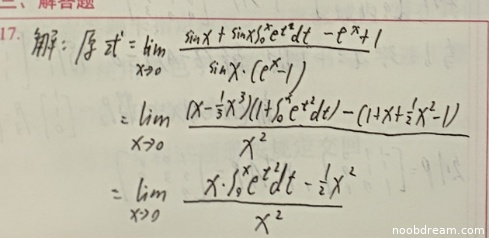 三、解答题
17. 解：原式 = lim x→0 (sinx + sinx∫₀ˣe^{t²}dt − e^x + 1) / (sinx·(e^x−1))
= lim x→0 ((x−⅓x³)(1+∫₀ˣe^{t²}dt) − (1+x+½x²−1)) / x²
= lim x→0 (x·∫₀ˣe^{t²}dt − ½x²) / x²
noobdream.com